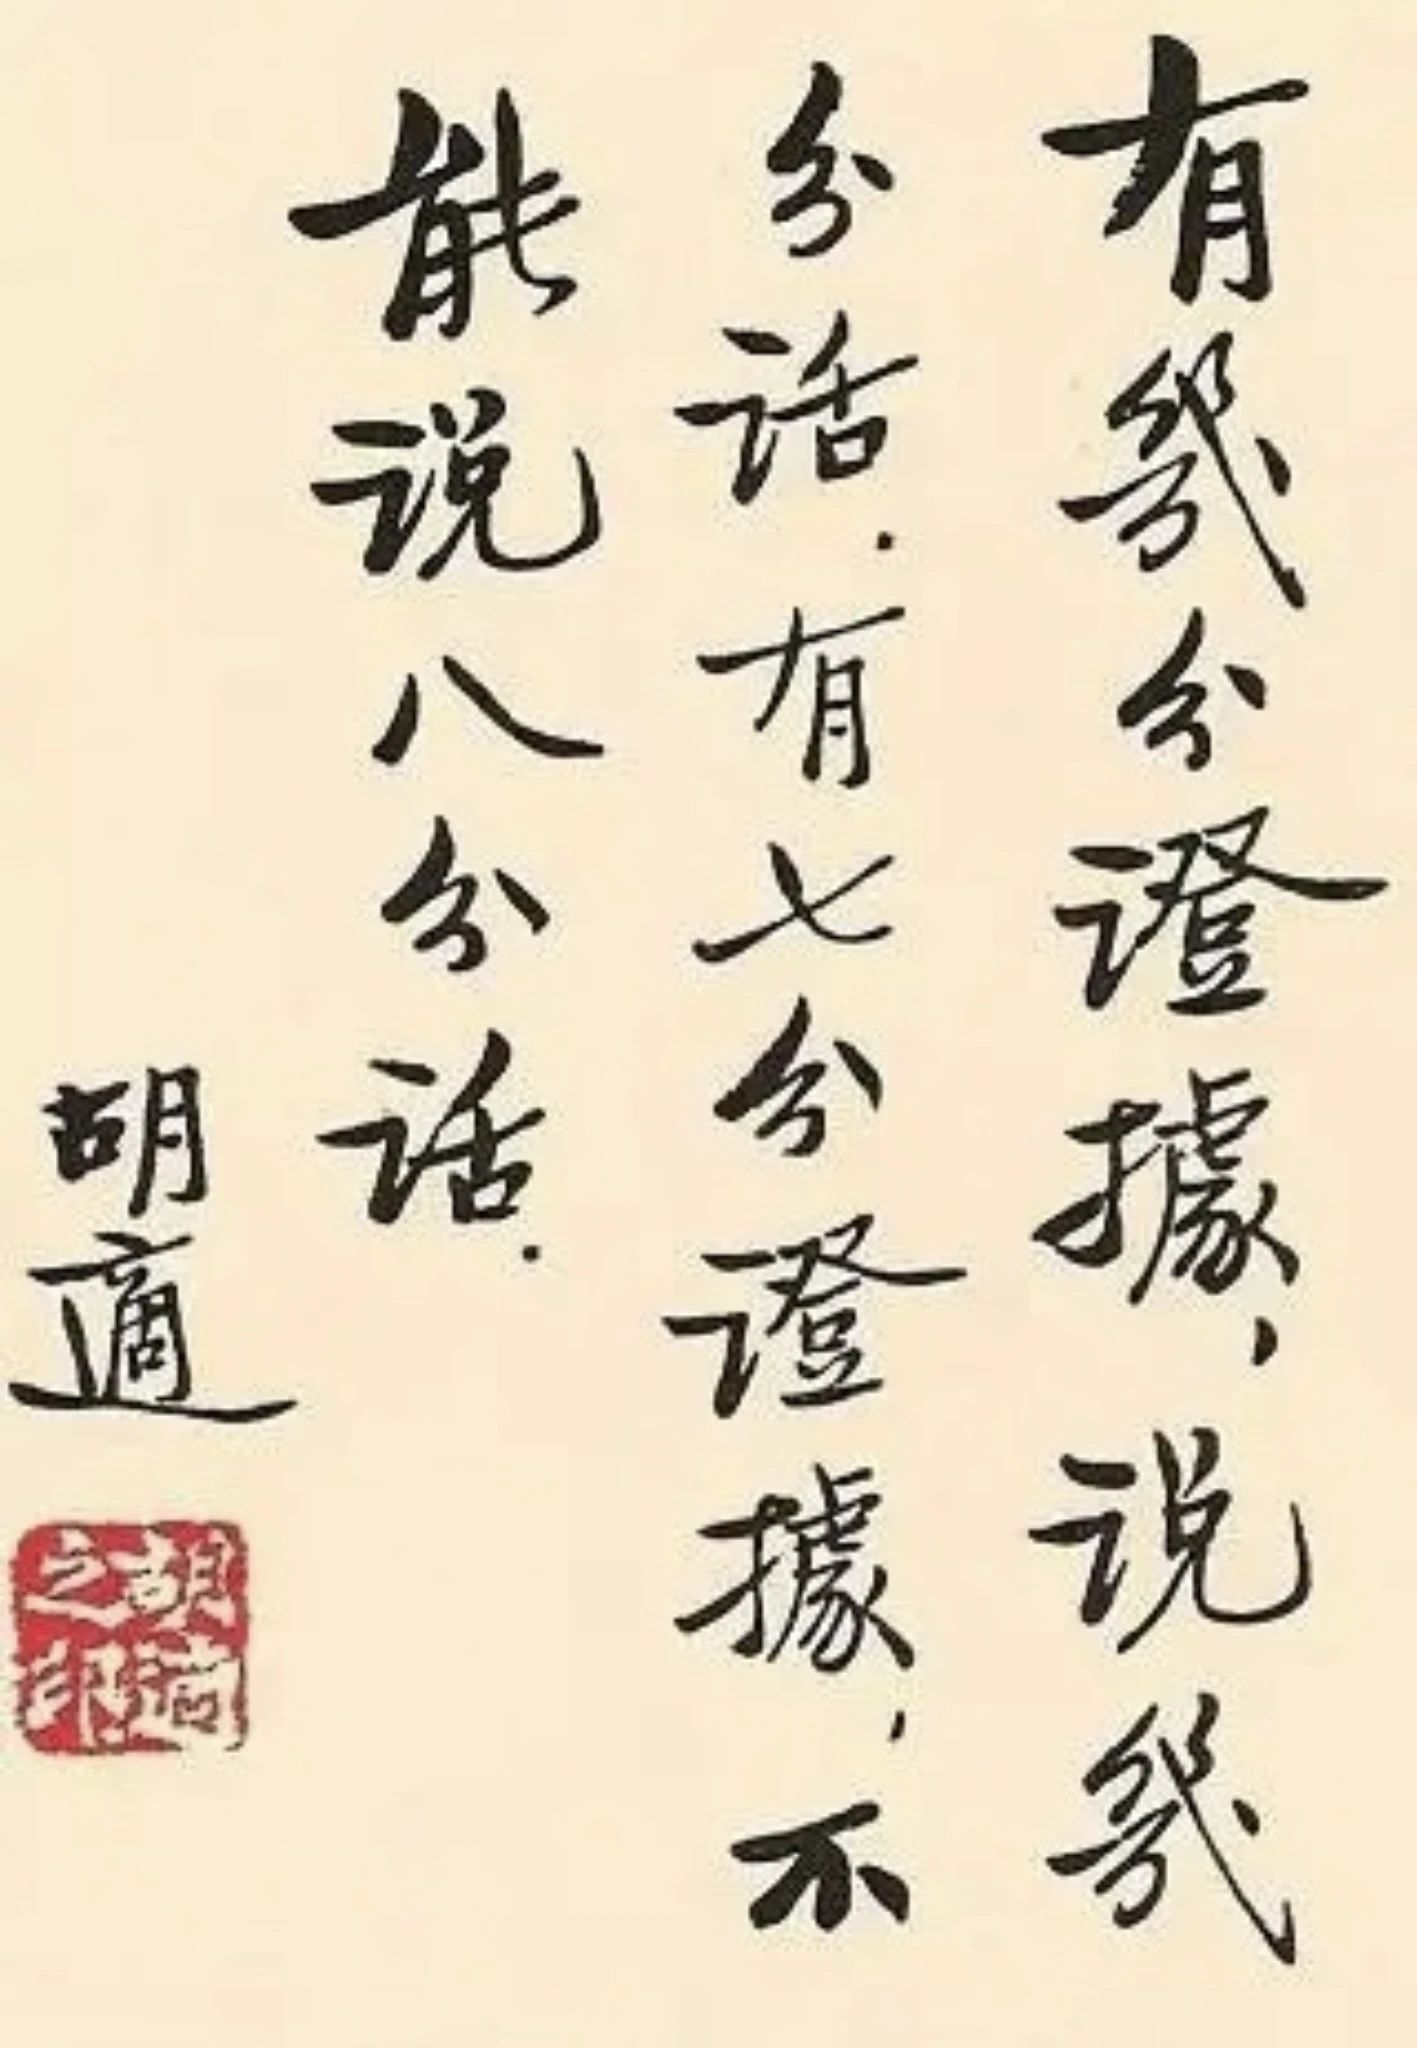 有幾分證據，说幾
分話．有七分證據，不
能说八分話．
胡適
胡適之印